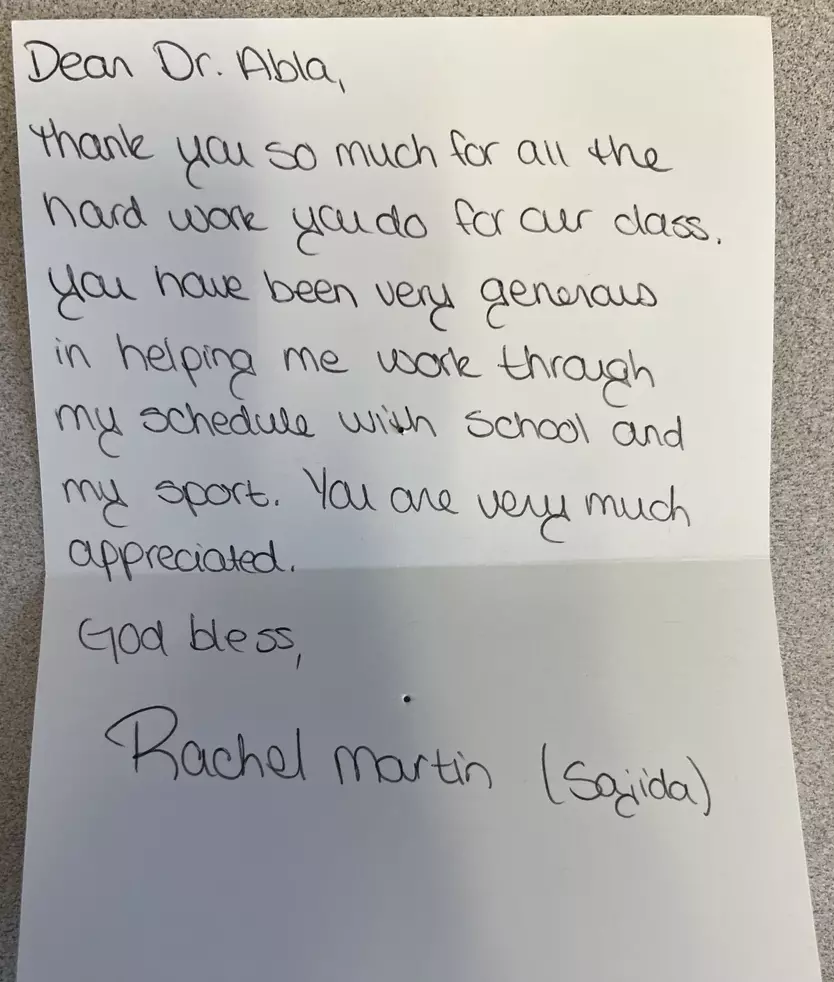 Dear Dr. Abla,
thank you so much for all the
hard work you do for our class.
you have been very generous
in helping me work through
my schedule with school and
my sport. You are very much
appreciated.
God bless,
Rachel Martin (Sajida)